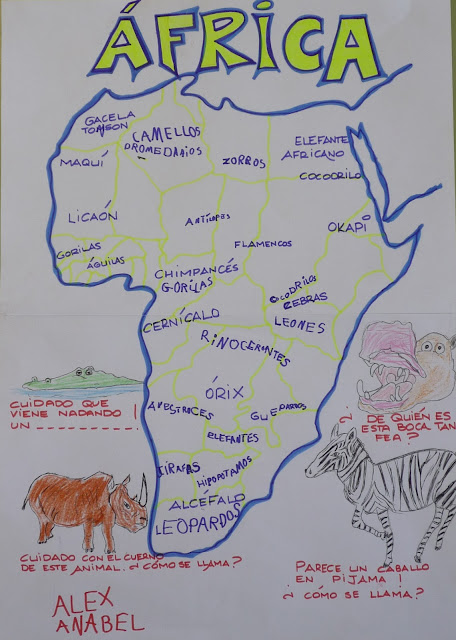 ÁFRICA
GACELA
TOMSON
CAMELLOS
DROMEDARIOS
MAQUÍ
ZORROS
ELEFANTE
AFRICANO
COCODRILO
LICAÓN
ANTÍLOPES
OKAPI
FLAMENCOS
GORILAS
ÁGUILAS
CHIMPANCÉS
GORILAS
COCODRILOS
CEBRAS
CERNÍCALO
LEONES
RINOCERONTES
ÓRIX
AVESTRUCES
GUEPARDOS
ELEFANTES
JIRAFAS
HIPOPOTAMOS
ALCÉFALO
LEOPARDOS
CUIDADO QUE
VIENE NADANDO
UN ____________ !
¿ DE QUIÉN ES
ESTA BOCA TAN
FEA ?
CUIDADO CON EL CUERNO
DE ESTE ANIMAL. ¿ CÓMO SE LLAMA ?
PARECE UN CABALLO
EN PIJAMA !
¿ CÓMO SE LLAMA ?
ALEX
ANABEL